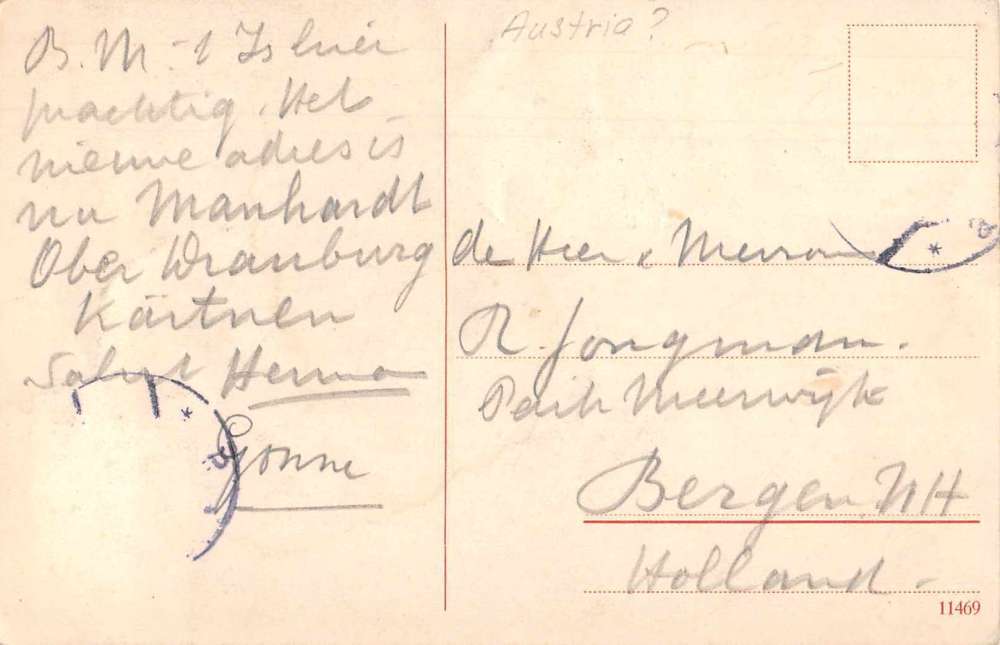 B.M. - 't Is hier
prachtig. Het
nieuwe adres is
nu Manhardt
Ober Drauburg
Kärtnen
Salut Herma
Yonne
Austria?
de Heer & Mevrouw
R. Jongman.
Park Meerwijk
Bergen NH
Holland -
11469